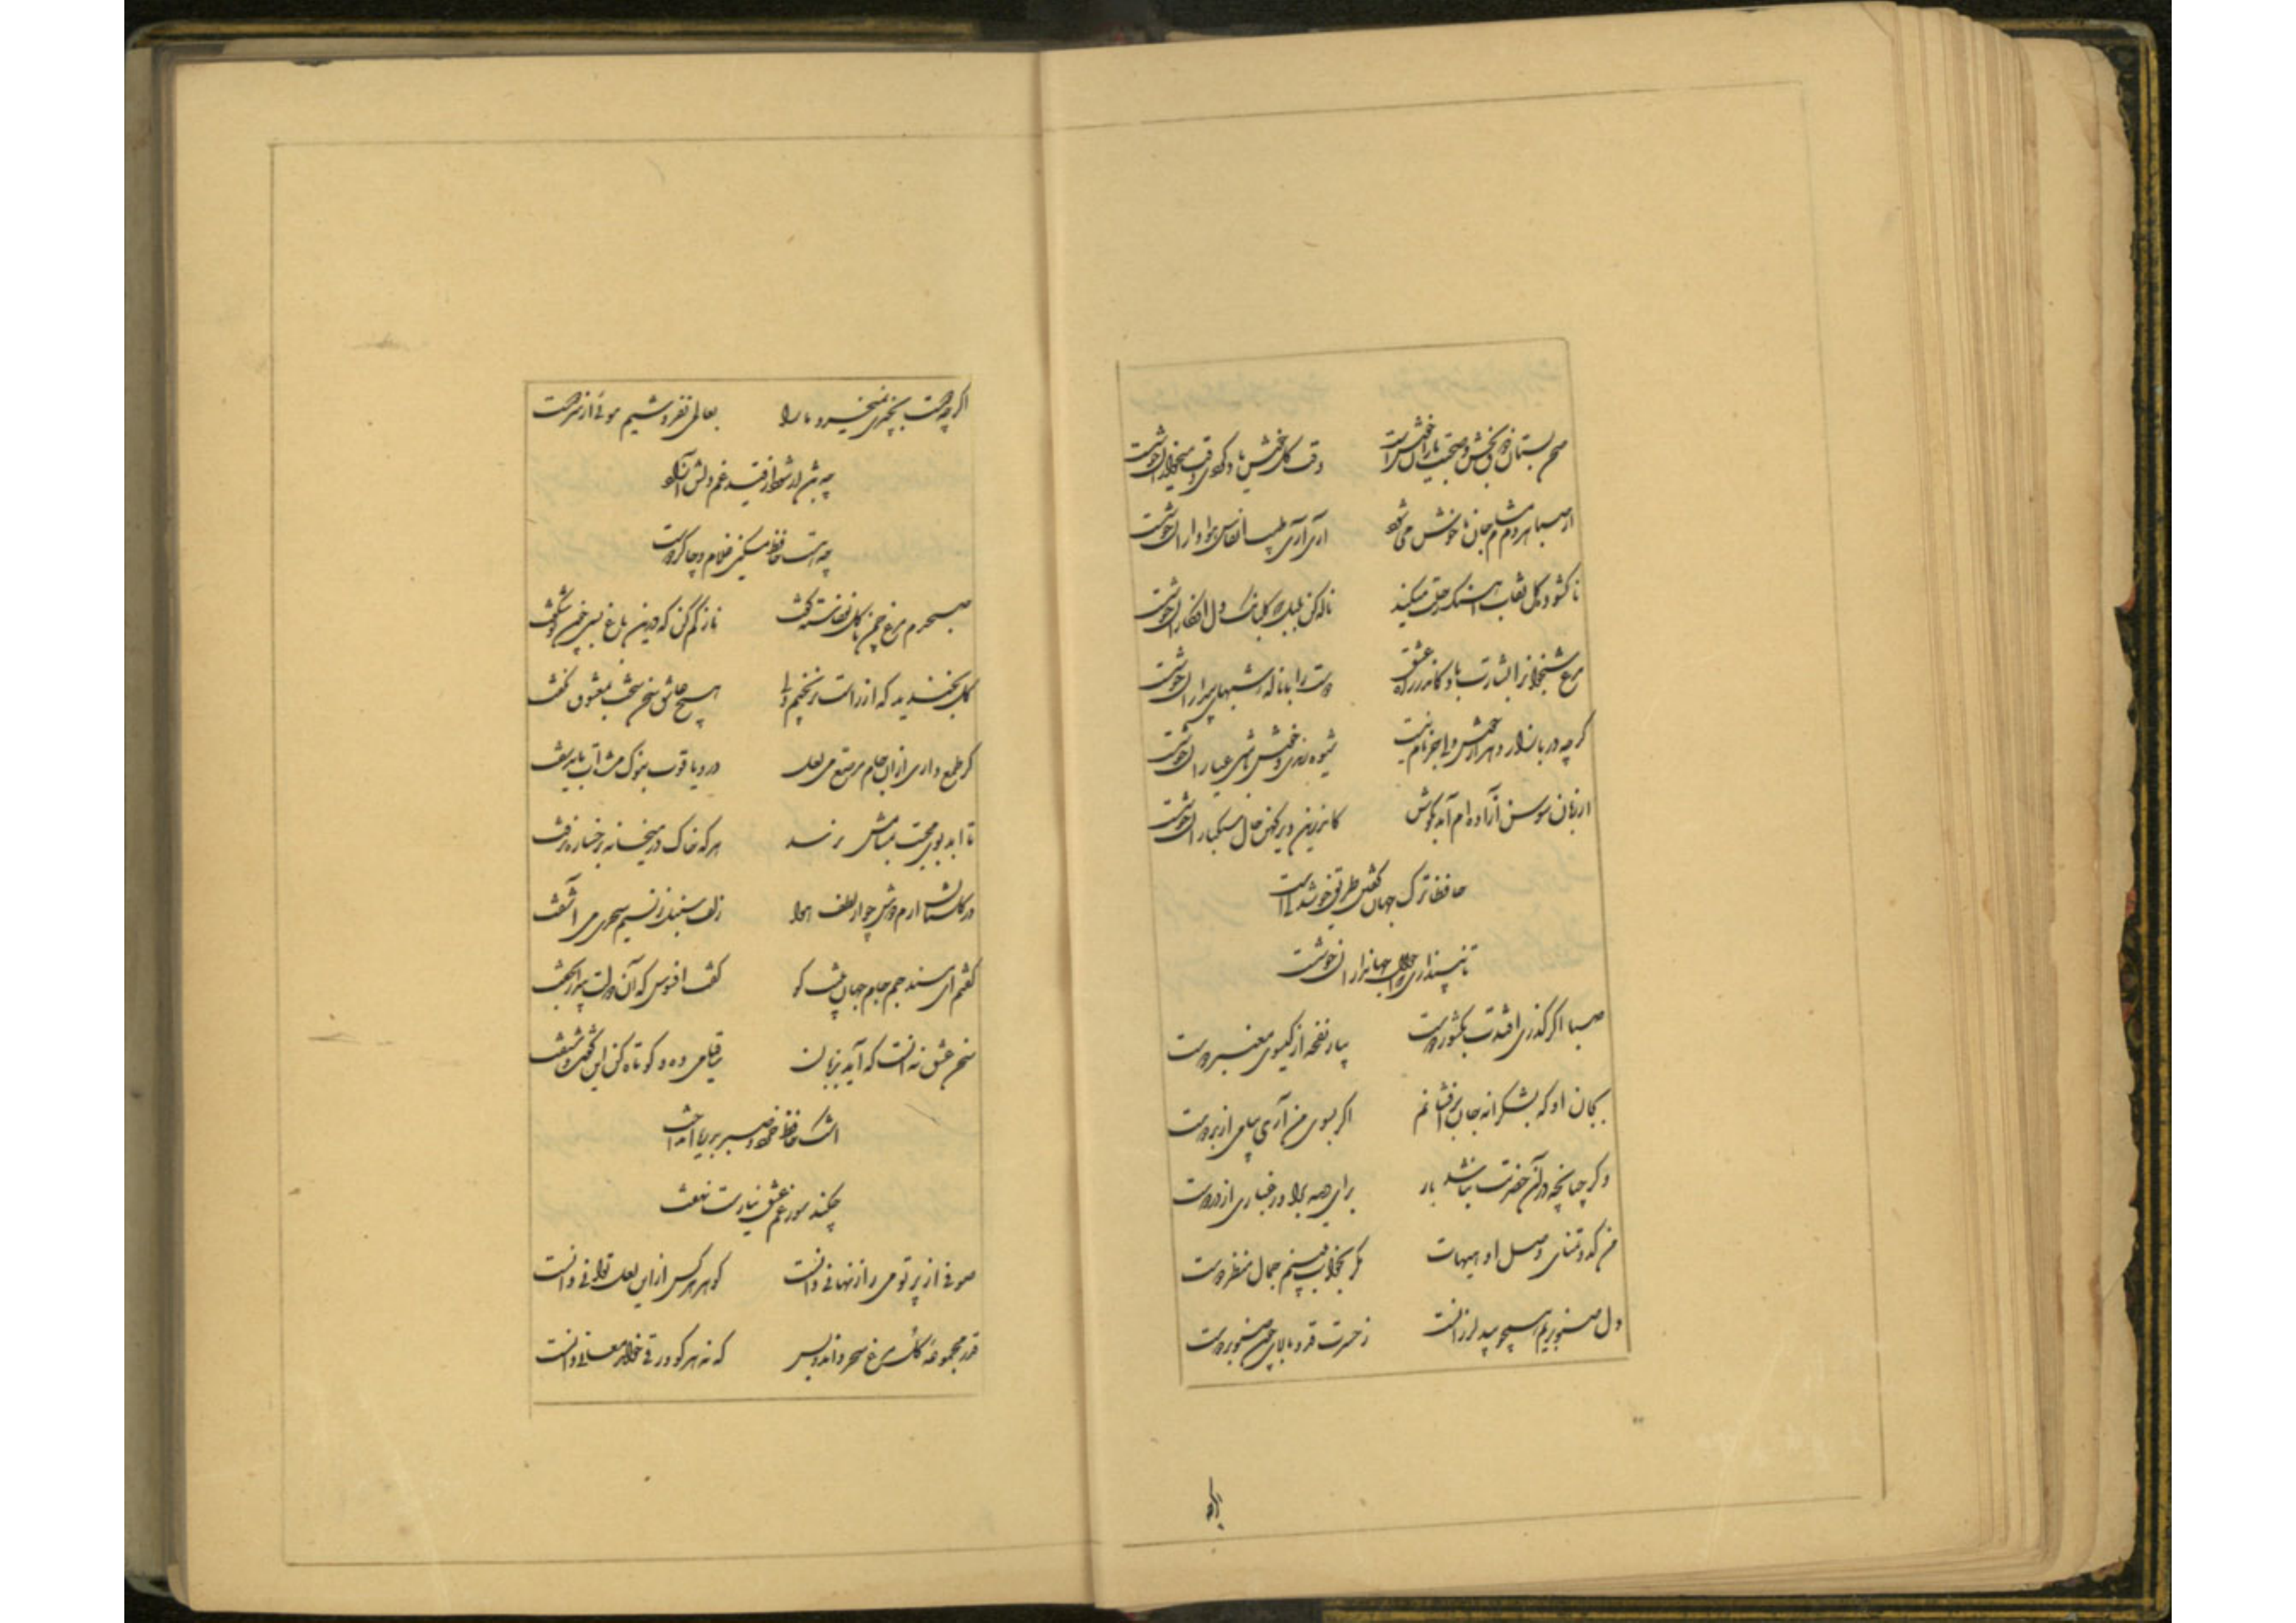 صحن بستان ذوق بخش و صحبت یاران خوشست وقت گل خوش باد کز وی وقت میخواران خوشست
از صبا هر دم مشام جان ما خوش می شود آری آری طیب انفاس هواداران خوشست
ناگشوده گل نقاب آهنگ رحلت میکند ناله کن بلبل که گلبانگ دل افکاران خوشست
مرغ شبخوانرا بشارت باد کاندر راه عشق دوست را با ناله شبهای بیداران خوشست
گرچه در بازار دهر از خوشدلی جز نام نیست شیوه رندی و خوش باشی عیاران خوشست
از زبان سوسن آزاده ام آمد بگوش کاندرین دیر کهن حال سبکباران خوشست
حافظا ترک جهان گفتن طریق خوشدلیست
تا نپنداری که احوال جهانداران خوشست
صبا اگر گذری افتدت بکشور دوست بیار نفحه از گیسوی معنبر دوست
بجان او که بشکرانه جان برافشانم اگر بسوی من آری پیامی از بر دوست
وگر چنانچه در آن حضرت نباشد بار برای دیده بیاور غباری از در دوست
من گدا و تمنای وصل او هیهات مگر بخواب ببینم جمال منظر دوست
دل صنوبریم همچو بید لرزانست ز حسرت قد و بالای چون صنوبر دوست
اگرچه
اگرچه دوست بچیزی نمیخرد ما را بعالمی نفروشیم موئی از سر دوست
چه شود ار شود از قید غم دلش آزاد
چو هست حافظ مسکین غلام و چاکر دوست
صبحدم مرغ چمن با گل نوخاسته گفت ناز کم کن که درین باغ بسی چون تو شکفت
گل بخندید که از راست نرنجیم ولی هیچ عاشق سخن سخت بمعشوق نگفت
گر طمع داری از آن جام مرصع می لعل در و یاقوت بنوک مژه ات باید سفت
تا ابد بوی محبت بمشامش نرسد هر که خاک در میخانه برخساره نرفت
در گلستان ارم دوش چو از لطف هوا زلف سنبل ز نسیم سحری می آشفت
گفتم ای مسند جم جام جهان بینت کو گفت افسوس که آن دولت بیدار بخفت
سخن عشق نه آنست که آید بزبان ساقیا می ده و کوتاه کن این گفت و شنفت
اشک حافظ خرد و صبر بدریا انداخت
چکند سوز غم عشق نیارست نهفت
صوفی از پرتو می راز نهانی دانست گوهر هر کس ازین لعل توانی دانست
قدر مجموعه گل مرغ سحر داند و بس که نه هر کو ورقی خواند معانی دانست